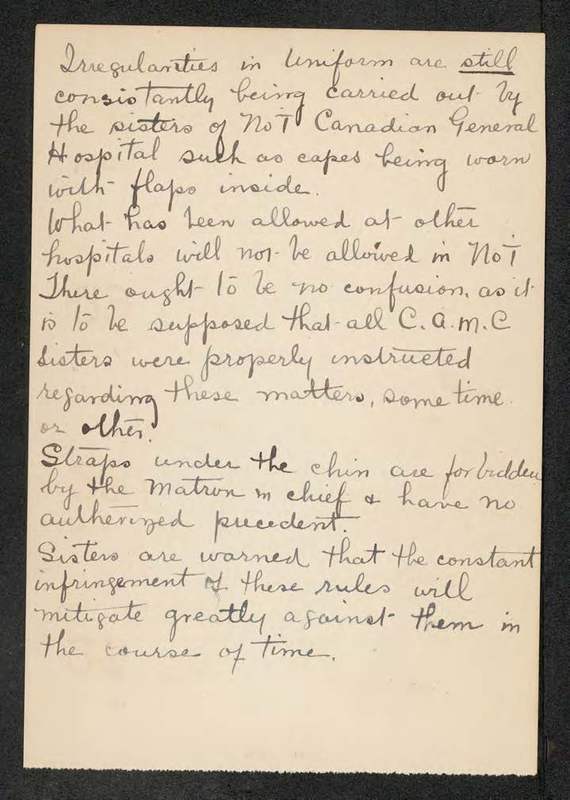 Irregularities in Uniform are still
consistantly being carried out by
the sisters of No I Canadian General
Hospital such as capes being worn
with flaps inside.
What has been allowed at other
hospitals will not be allowed in No I.
There ought to be no confusion, as it
is to be supposed that all C.A.M.C
Sisters were properly instructed
regarding these matters, some time
or other.
Straps under the chin are forbidden
by the Matron in chief & have no
autherized precedent.
Sisters are warned that the constant
infringement of these rules will
mitigate greatly against them in
the course of time.